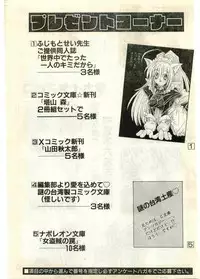 プレゼントコーナー
①ふじもとせい先生
ご提供同人誌
「世界中でたった
一人のキミだから」
3名様
②コミック文庫☆新刊
「塔山 森」
2冊組セットで
5名様
③Xコミック☆新刊
「山田秋太郎」
5名様
④編集部より愛を込めて♡
謎の台湾製コミック文庫
(怪しいです)
3名様
⑤ナポレオン文庫
「女盗賊の罠」
10名様
1
謎の台湾土産♡
5
■項目の中から選んで番号を指定し必ずアンケートハガキでご応募ください■